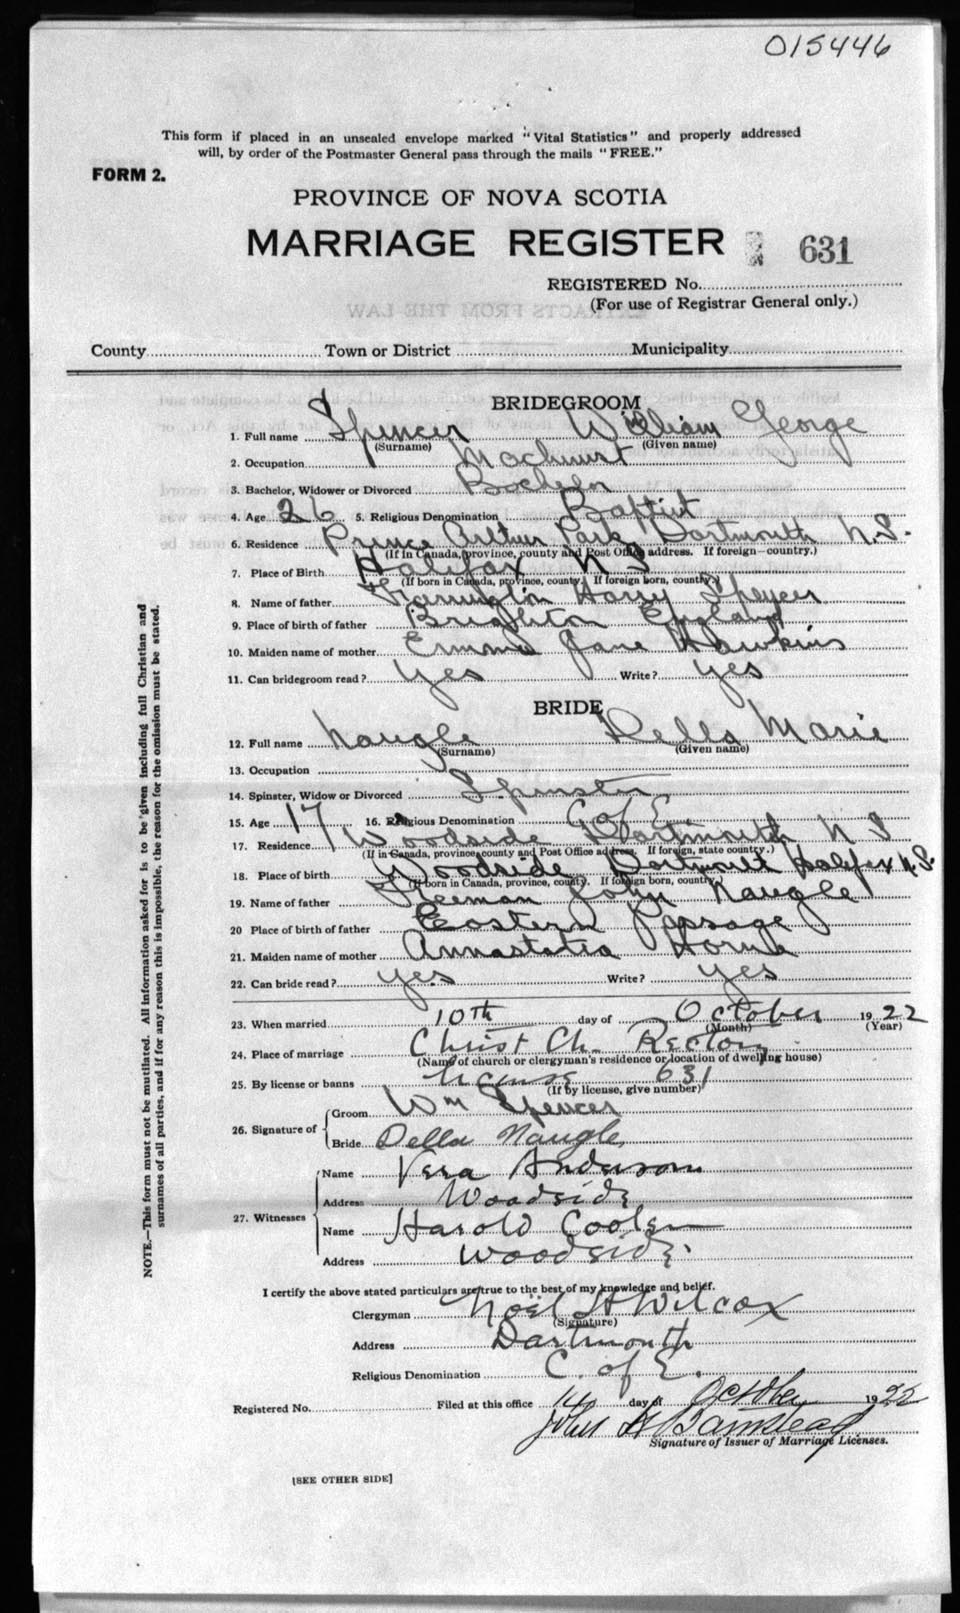 015446
This form if placed in an unsealed envelope marked "Vital Statistics" and properly addressed
will, by order of the Postmaster General pass through the mails "FREE."
FORM 2.
PROVINCE OF NOVA SCOTIA
MARRIAGE REGISTER 631
REGISTERED No.
(For use of Registrar General only.)
EXTRACTS FROM THE LAW
County Town or District Municipality
BRIDEGROOM
1. Full name Spencer William George
(Surname) (Given name)
2. Occupation Machinist
3. Bachelor, Widower or Divorced Bachelor
4. Age 26 5. Religious Denomination Baptist
6. Residence Prince Arthur Park Dartmouth N.S.
(If in Canada, province, county and Post Office address. If foreign—country.)
7. Place of Birth Halifax N S
(If born in Canada, province, county. If foreign born, country.)
8. Name of father Harrington Harry Spencer
9. Place of birth of father Brighton England
10. Maiden name of mother Emma Jane Hawkins
11. Can bridegroom read? Yes Write? Yes
BRIDE
12. Full name Naugle Della Marie
(Surname) (Given name)
13. Occupation
14. Spinster, Widow or Divorced Spinster
15. Age 17 16. Religious Denomination C of E
17. Residence Woodside Dartmouth N S
(If in Canada, province, county and Post Office address. If foreign, state country.)
18. Place of birth Woodside Dartmouth Halifax N.S.
(If born in Canada, province, county. If foreign born, country.)
19. Name of father Freeman John Naugle
20 Place of birth of father Eastern Passage
21. Maiden name of mother Annastatia Horne
22. Can bride read? yes Write? yes
23. When married 10th day of October 1922
(Month) (Year)
24. Place of marriage Christ Ch. Rectory
(Name of church or clergyman's residence or location of dwelling house)
25. By license or banns license 631
(If by license, give number)
26. Signature of Groom Wm Spencer
Bride Della Naugle
27. Witnesses Name Vera Anderson
Address Woodside
Name Harold Coolen
Address Woodside.
I certify the above stated particulars are true to the best of my knowledge and belief.
Clergyman Noël H Wilcox
(Signature)
Address Dartmouth
Religious Denomination C. of E.
Registered No. Filed at this office 14 day of October 1922
John H Bamstead
Signature of Issuer of Marriage Licenses.
[SEE OTHER SIDE]
NOTE.—This form must not be mutilated. All information asked for is to be given including full Christian and
surnames of all parties, and if for any reason this is impossible, the reason for the omission must be stated.